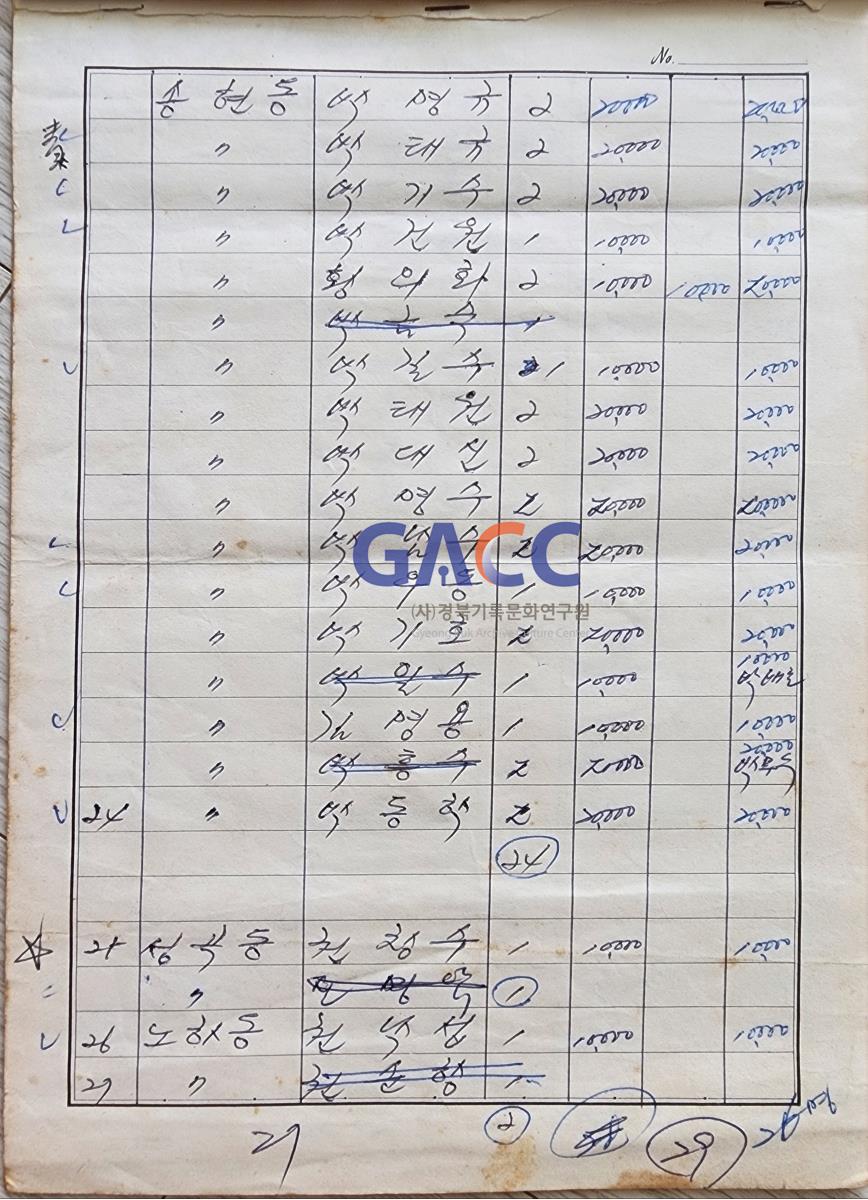 No.
송현동 박영규 2 20,000 20,000
〃 박태규 2 20,000 20,000
〃 박기수 2 20,000 20,000
〃 박건원 1 10,000 10,000
〃 황의화 2 10,000 10,000 20,000
〃 1
〃 박길수 1 10,000 10,000
〃 박태원 2 20,000 20,000
〃 박대진 2 20,000 20,000
〃 박영수 2 20,000 20,000
〃 박남수 2 20,000 20,000
GACC
〃 박 동 1 10,000 10,000
(사)경북기록문화연구원
〃 박기호 2 20,000 20,000
10,000
〃 박일수 1 10,000
〃 김영용 1 10,000 10,000
20,000
〃 박흥수 2 20,000
24 〃 박동학 2 20,000 20,000
24
성곡동 권창수 1 10,000 10,000
〃 1
26 노하동 권낙섭 1 10,000 10,000
27 〃 권순창 1
2
29